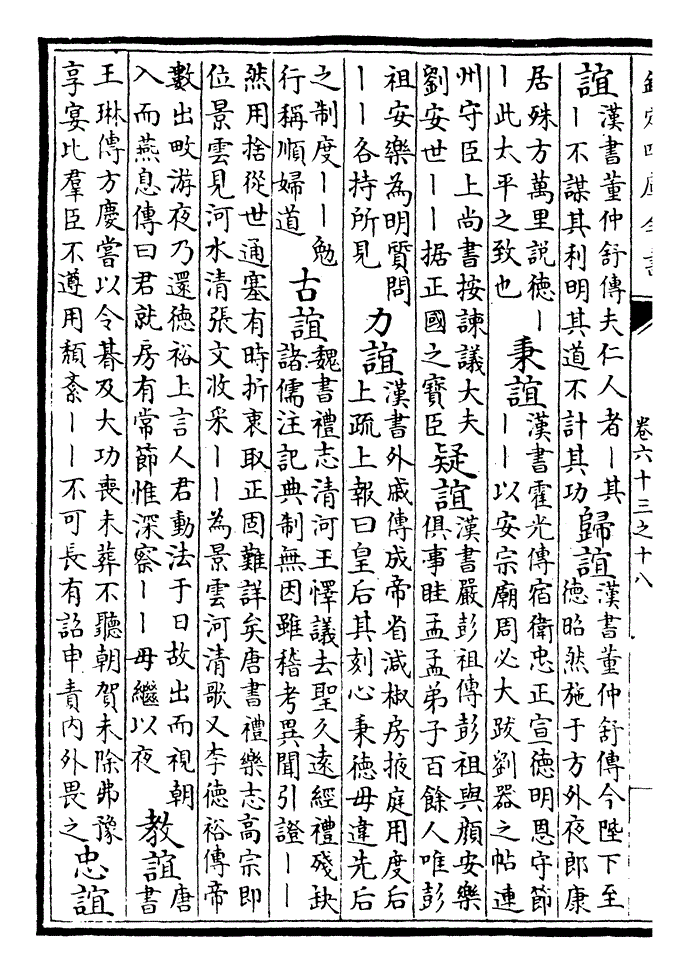 欽定四庫全書
卷六十三之十八
誼
漢書董仲舒傳夫仁人者丨其
丨不謀其利明其道不計其功
歸誼
漢書董仲舒傳今陛下至
德昭然施于方外夜郎康
居殊方萬里説德丨
丨此太平之致也
秉誼
漢書霍光傳宿衛忠正宣德明恩守節
丨丨以安宗廟周必大跋劉器之帖連
州守臣上尚書按諫議大夫
劉安世丨丨据正國之寶臣
疑誼
漢書嚴彭祖傳彭祖與顔安樂
俱事眭孟孟弟子百餘人唯彭
祖安樂為明質問
丨丨各持所見
力誼
漢書外戚傳成帝省減椒房掖庭用度后
上疏上報曰皇后其刻心秉德毋違先后
之制度丨丨勉
行稱順婦道
古誼
魏書禮志清河王懌議去聖久遠經禮殘缺
諸儒注記典制無因雖稽考異聞引證丨丨
然用捨從世通塞有時折衷取正固難詳矣唐書禮樂志高宗即
位景雲見河水清張文收采丨丨為景雲河清歌又李德裕傳帝
數出畋游夜乃還德裕上言人君動法于日故出而視朝
入而燕息傳曰君就房有常節惟深察丨丨毋繼以夜
教誼
唐
書
王琳傳方慶嘗以令朞及大功喪未葬不聽朝賀未除弗豫
享宴比羣臣不遵用頹紊丨丨不可長有詔申責内外畏之
忠誼